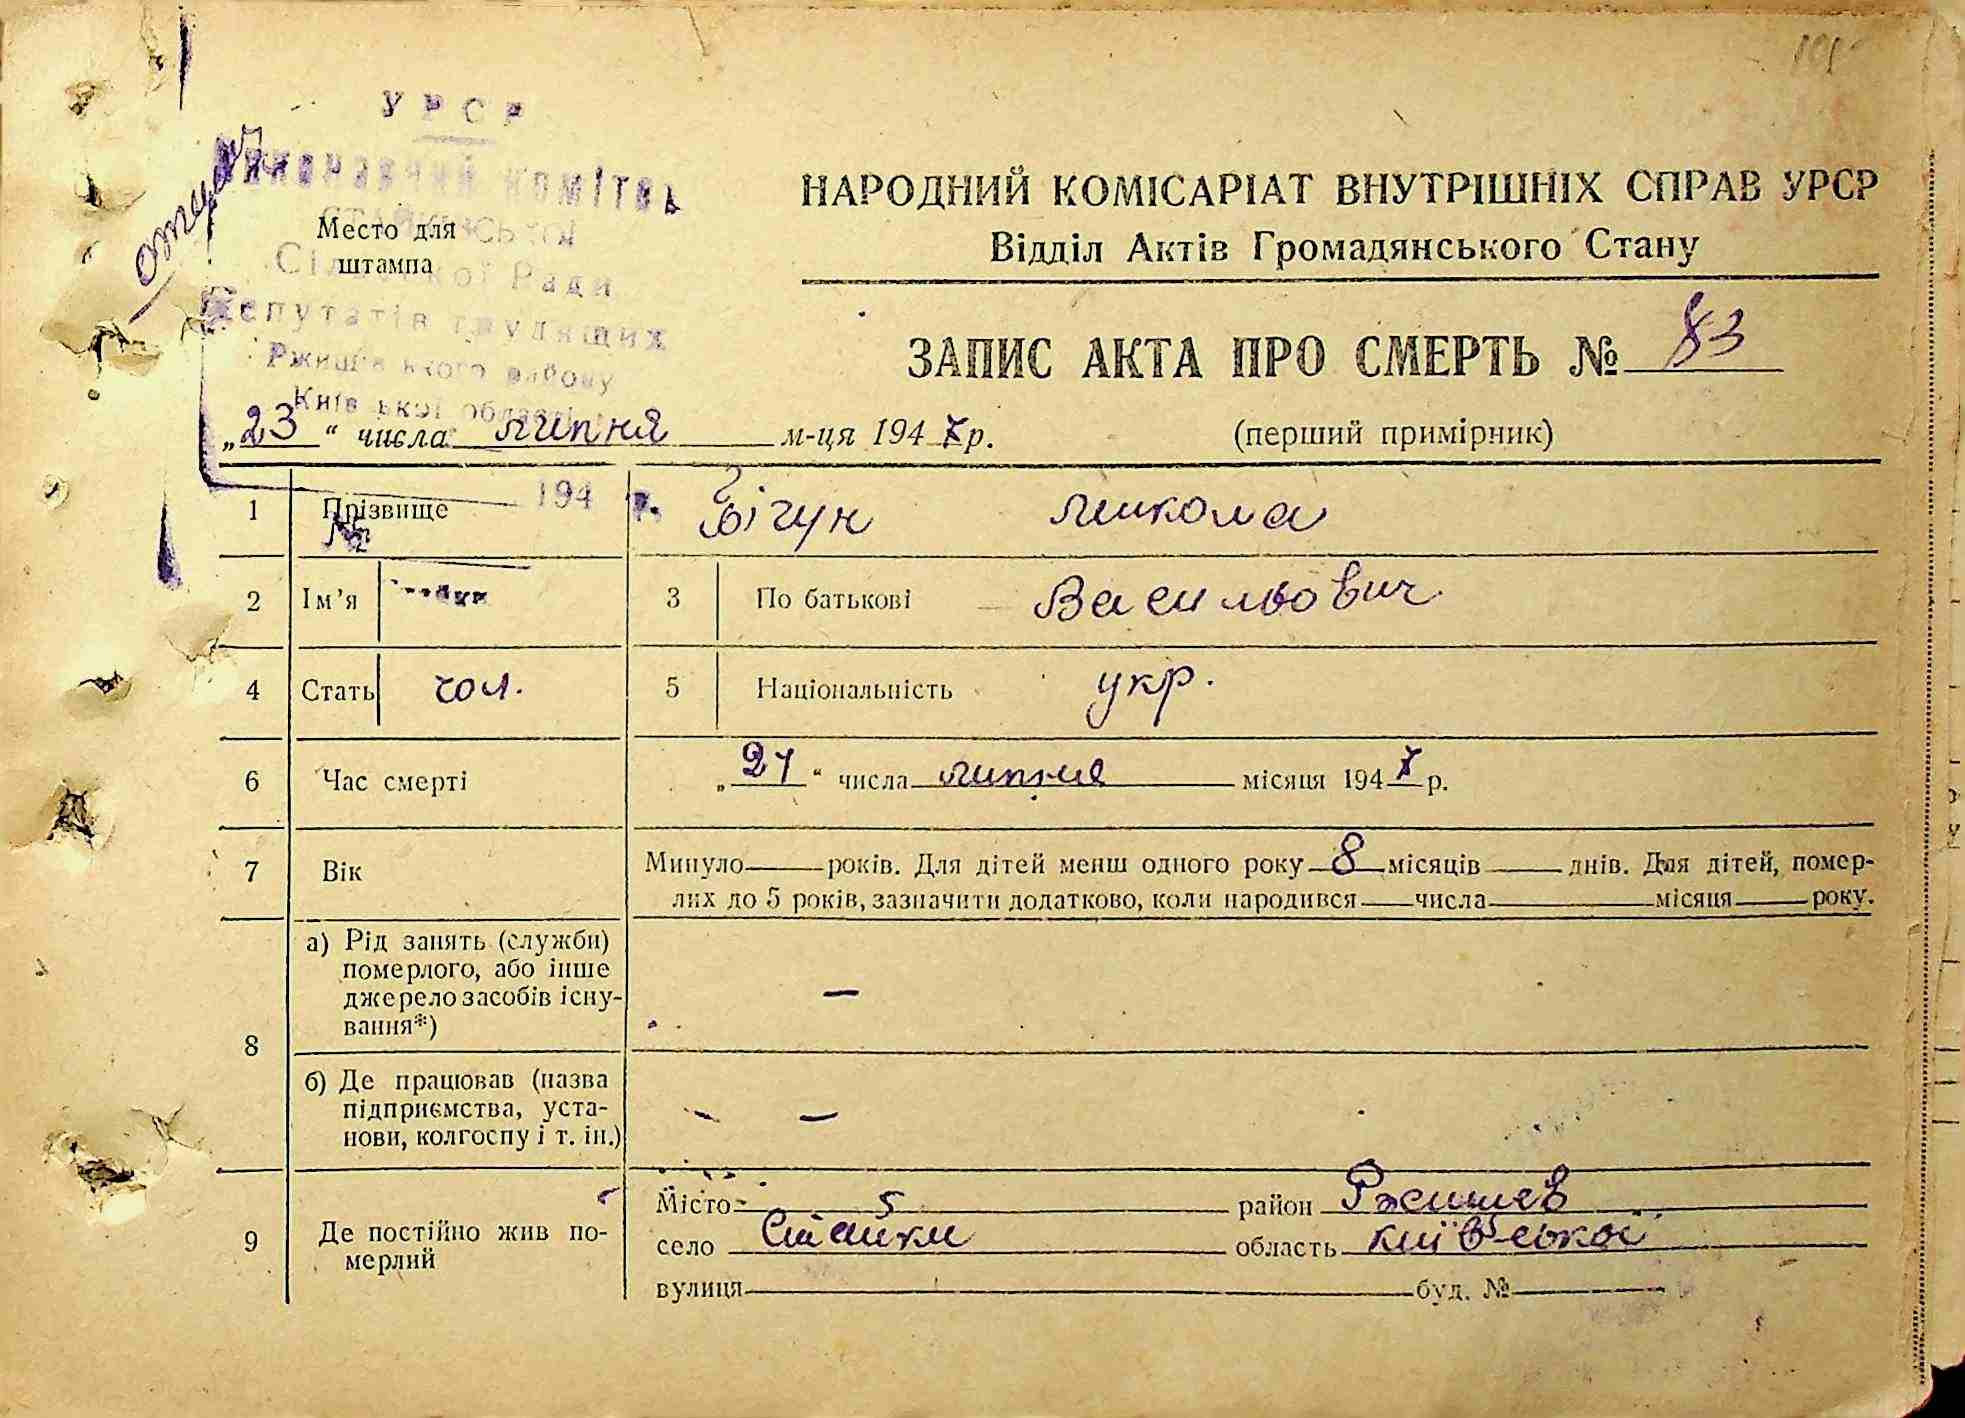 101
УРСР
Виконавчий комітет
Стайківської
Місто для
штампа
Сільської Ради
Депутатів трудящих
Ржищівського району
Київської області
НАРОДНИЙ КОМІСАРІАТ ВНУТРІШНІХ СПРАВ УРСР
Відділ Актів Громадянського Стану
ЗАПИС АКТА ПРО СМЕРТЬ № 83
„23“ числа липня м-ця 1947 р.
(перший примірник)
194 р.
1 Прізвище Бігун Микола
№
2 Ім’я 3 По батькові Васильович
4 Стать чол. 5 Національність укр.
6 Час смерті „21“ числа липня місяця 1947 р.
7 Вік Минуло років. Для дітей менш одного року 8 місяців днів. Для дітей, помер-
лих до 5 років, зазначити додатково, коли народився числа місяця року.
8 а) Рід занять (служби)
померлого, або інше
джерело засобів існу-
вання*) —
б) Де працював (назва
підприємства, уста-
нови, колгоспу і т. ін.) —
9 Де постійно жив по-
мерлий
Місто район Ржищев
село Стайки область київської
вулиця буд. №